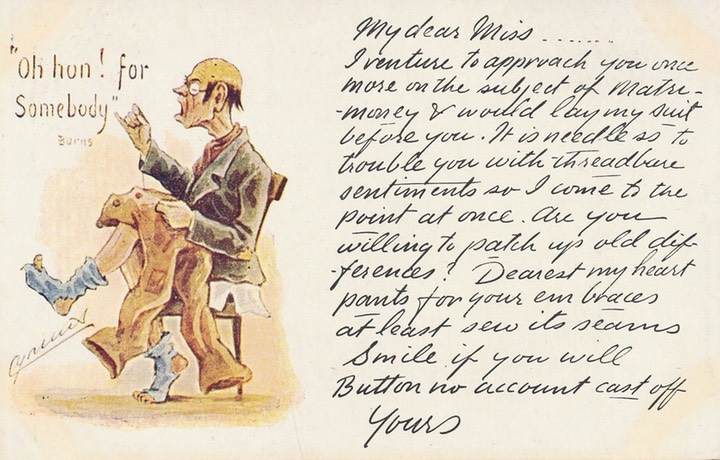 "Oh hon! for
Somebody"
Burns
My dear Miss .......
I venture to approach you once
more on the subject of Matri-
-money & would lay my suit
before you. It is needle ss to
trouble you with threadbare
sentiments so I come to the
point at once. Are you
willing to patch up old dif-
-ferences? Dearest my heart
pants for your em braces
at least sew its seams
Smile if you will
Button no account cast off
Yours
Cynicus